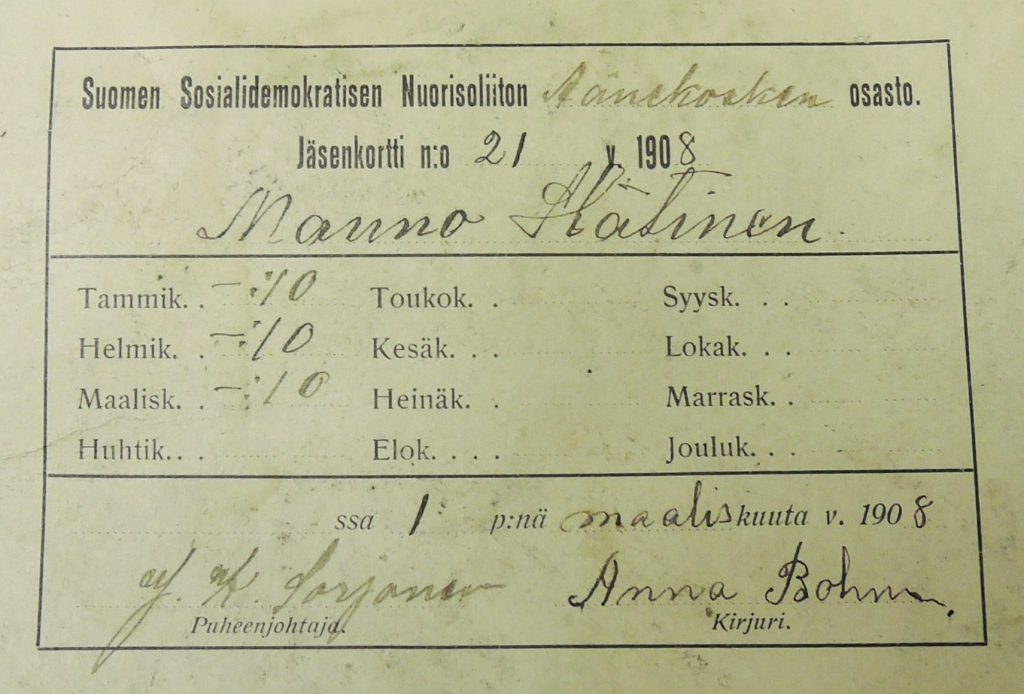 Suomen Sosialidemokratisen Nuorisoliiton Äänekosken osasto.
Jäsenkortti n:o 21 v. 1908
Manno Hätinen.
Tammik. . –:10 Toukok. . Syysk. . .
Helmik. . –:10 Kesäk. . . Lokak. . .
Maalisk. . –:10 Heinäk. . Marrask. .
Huhtik. . . Elok. . . . Jouluk. . .
ssa 1 p:nä maaliskuuta v. 1908
K. Sorjonen Anna Bohm
Puheenjohtaja. Kirjuri.